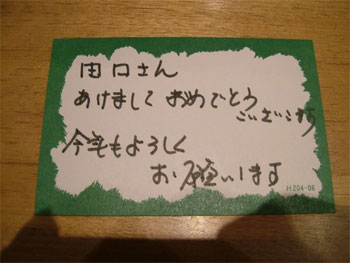 田口さん
あけまして おめでとう
ございます
今年もよろしく
お願いします
H.204-06